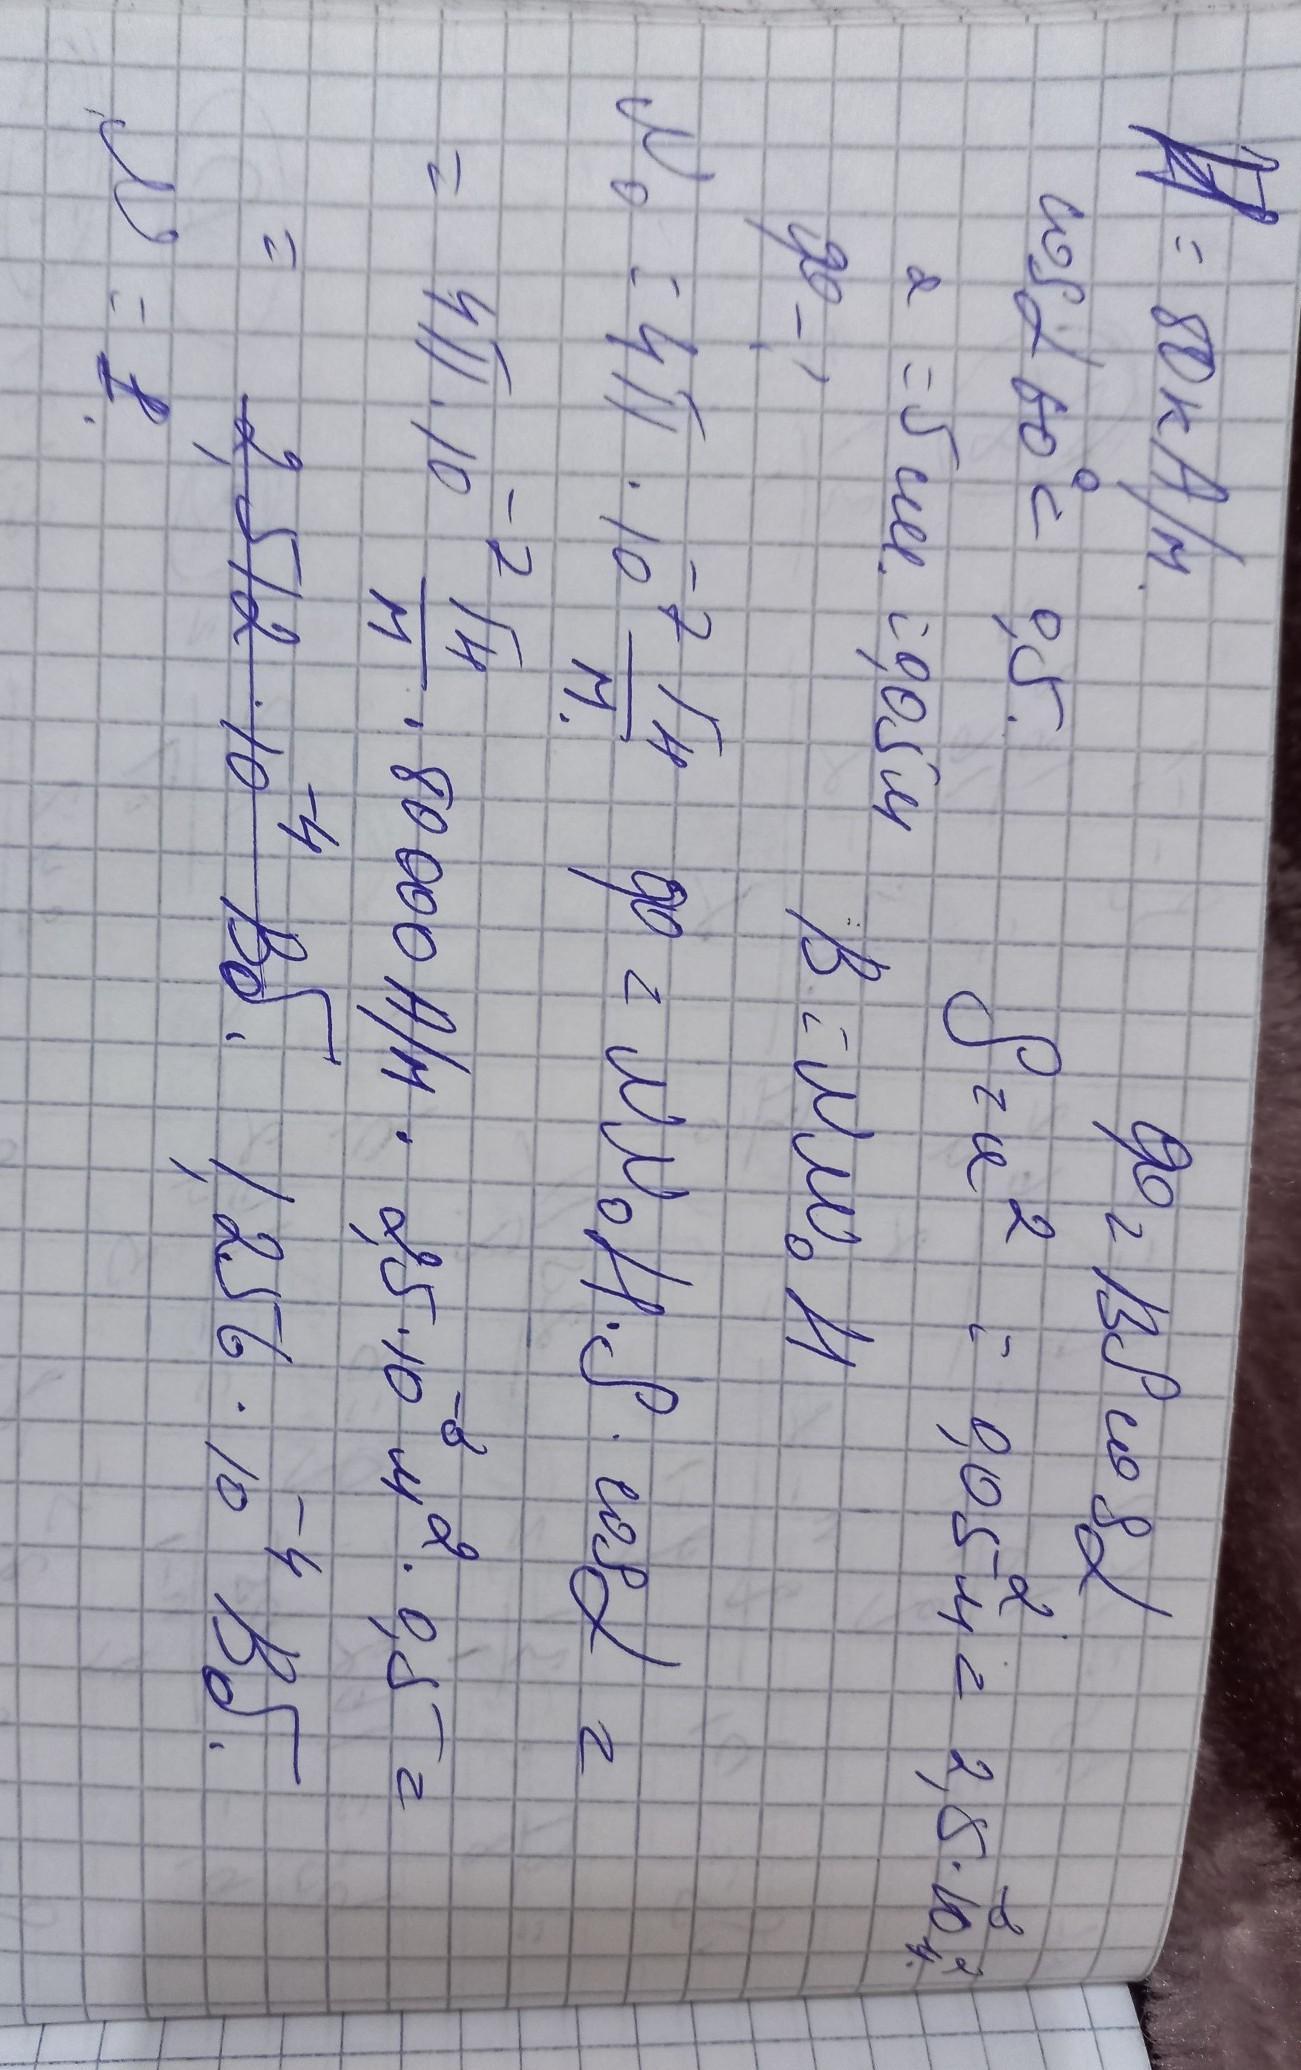 H = 80 кА/м. φ = BS cos α
cos α 60° = 0,5.
a = 5 см. = 0,05 м S = a² = 0,05² м = 2,5·10⁻³ м².
φ - ? B = μμ₀H
μ₀ = 4π · 10⁻⁷ Гн/м. φ = μμ₀H·S · cos α =
= 4π · 10⁻⁷ Гн/м · 80 000 А/м · 2,5·10⁻³ м² · 0,5 =
= 2,512 · 10⁻⁴ Вб. 1,256 · 10⁻⁴ Вб.
μ = 1.